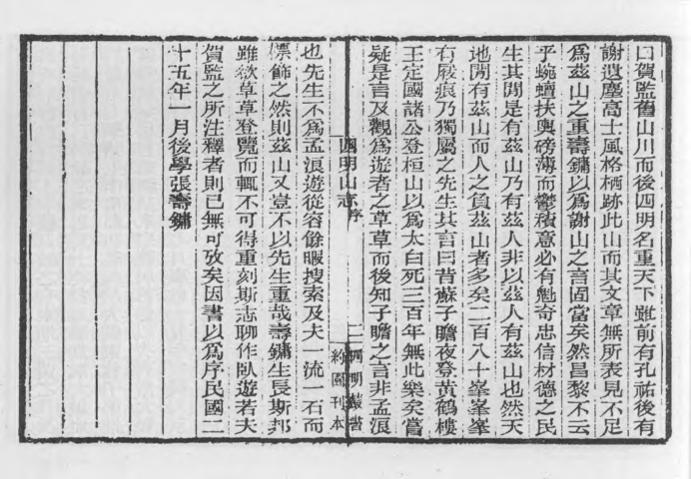 曰賀監舊山川而後四明名重天下雖前有孔祐後有
謝遺塵高士風格栖跡此山而其文章無所表見不足
爲茲山之重壽鏞以爲謝山之言固當矣然昌黎不云
乎蜿蟺扶輿磅薄而鬱積意必有魁奇忠信材德之民
生其間是有茲山乃有茲人非以茲人有茲山也然天
地間有茲山而人之負茲山者多矣二百八十峯峯峯
有屐痕乃獨屬之先生其言曰昔蘇子瞻夜登黃鶴樓
王定國諸公登桓山以爲太白死三百年無此樂矣嘗
四明山志
序
二
四明叢書
約園刊本
疑是言及觀爲遊者之草草而後知子瞻之言非孟浪
也先生不爲孟浪遊從容餘暇搜索及夫一流一石而
標飾之然則茲山又豈不以先生重哉壽鏞生長斯邦
雖欲草草登覽而輒不可得重刻斯志聊作臥遊若夫
賀監之所注釋者則已無可攷矣因書以爲序民國二
十五年一月後學張壽鏞